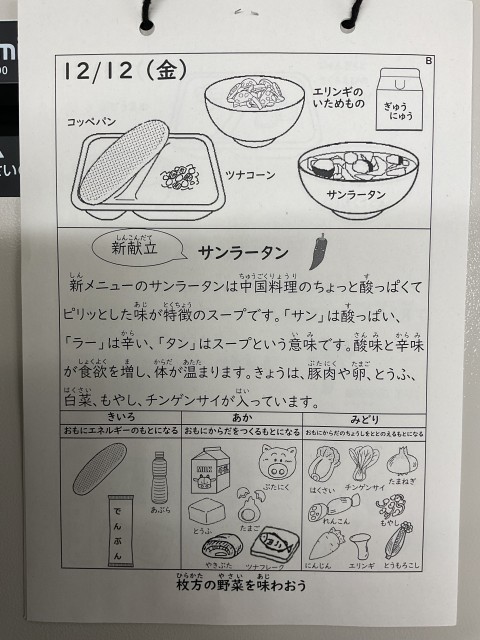 12/12（金）
B
エリンギの
いためもの
ぎゅう
にゅう
コッペパン
ツナコーン
サンラータン
新献立
サンラータン
新メニューのサンラータンは中国料理のちょっと酸っぱくて
ピリッとした味が特徴のスープです。「サン」は酸っぱい、
「ラー」は辛い、「タン」はスープという意味です。酸味と辛味
が食欲を増し、体が温まります。きょうは、豚肉や卵、とうふ、
白菜、もやし、チンゲンサイが入っています。
きいろ
おもにエネルギーのもとになる
あか
おもにからだをつくるもとになる
みどり
おもにからだのちょうしをととのえるもとになる
あぶら
でんぷん
MILK
ぶたにく
とうふ
たまご
やきぶた
ツナフレーク
はくさい
チンゲンサイ
たまねぎ
れんこん
もやし
にんじん
エリンギ
とうもろこし
枚方の野菜を味わおう